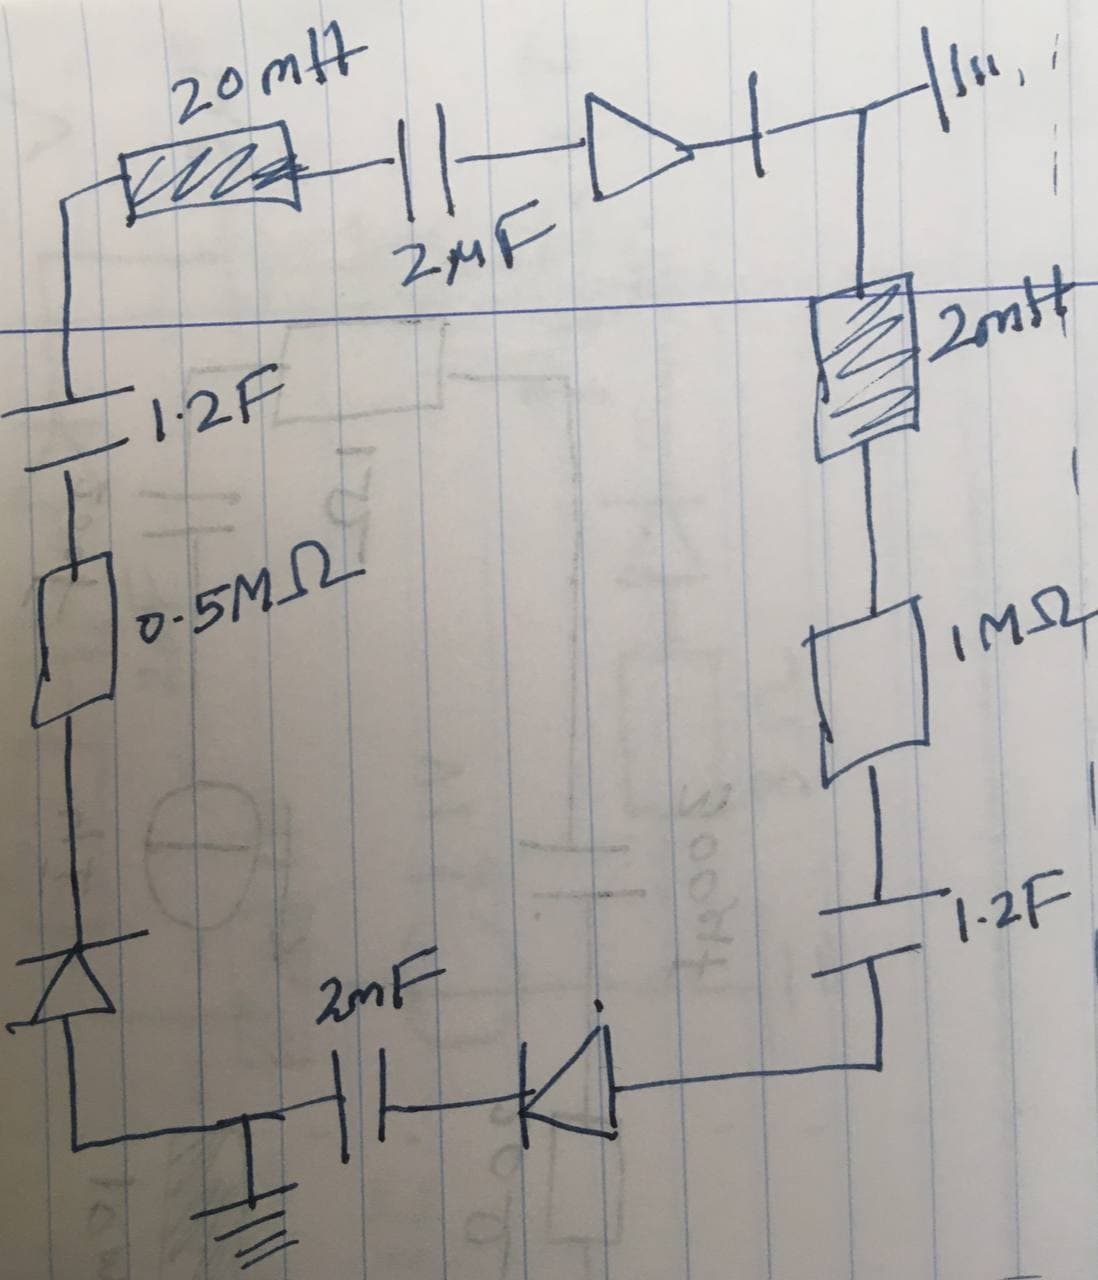 20mH
2μF
2mH
1.2F
0.5MΩ
1MΩ
1.2F
2mF